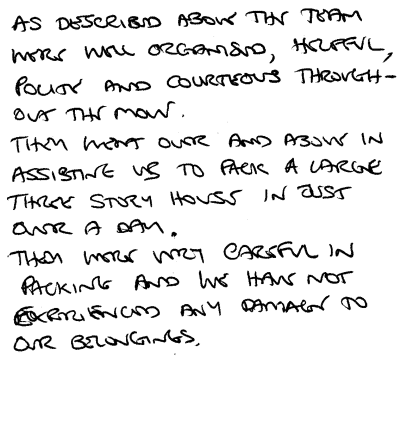 AS DESCRIBED ABOVE THE TEAM
WERE WELL ORGANISED, HELPFUL,
POLITE AND COURTEOUS THROUGH-
OUT THE MOVE.
THEY WENT OVER AND ABOVE IN
ASSISTING US TO PACK A LARGE
THREE STORY HOUSE IN JUST
OVER A DAY.
THEY WERE VERY CAREFUL IN
PACKING AND WE HAVE NOT
EXPERIENCED ANY DAMAGE TO
OUR BELONGINGS.